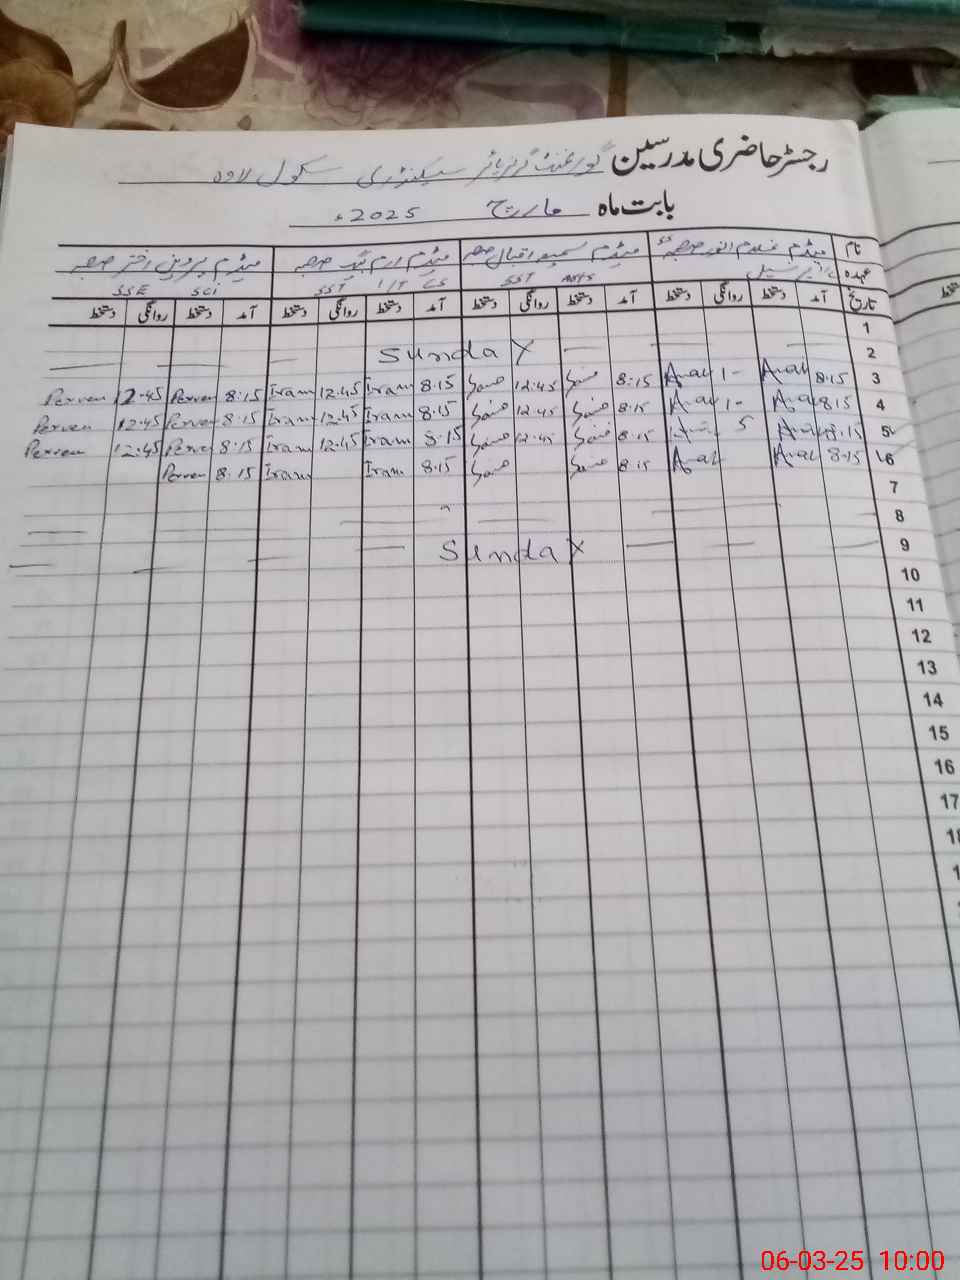 رجسٹر حاضری مدرسین گورنمنٹ گرلز ہائر سیکنڈری سکول لاوہ
بابت ماہ مارچ 2025ء
نام میڈم غلام صاحبہ میڈم سمیرا اقبال صاحبہ میڈم ارم صاحبہ میڈم پروین اختر صاحبہ
عہدہ پرنسپل SST Arts SST I/T CS SSE Sci
تاریخ آمد دستخط روانگی دستخط آمد دستخط روانگی دستخط آمد دستخط روانگی دستخط آمد دستخط روانگی دستخط
1
2 Sunday
3 8:15 1- 8:15 12:45 8:15 Iram 12:45 Iram 8:15 Perven 12:45 Perven
4 8:15 1- 8:15 12:45 8:15 Iram 12:45 Iram 8:15 Perven 12:45 Perven
5 8:15 8:15 12:45 8:15 Iram 12:45 Iram 8:15 Perven 12:45 Perven
6 8:15 8:15 8:15 Iram Iram 8:15 Perven
7
8
9 Sunday
10
11
12
13
14
15
16
17
18
06-03-25 10:00